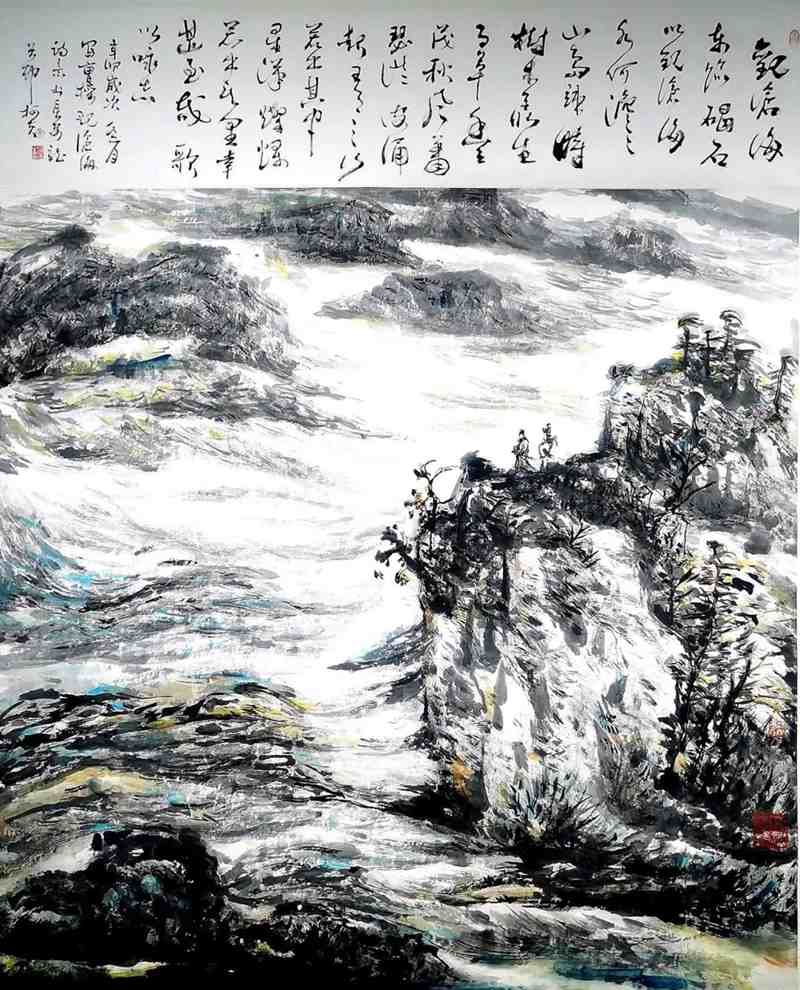 觀滄海
东临碣石
以觀滄海
水何澹々
山島竦峙
樹木叢生
百草豐
茂秋风蕭
瑟洪波涌
起日月之行
若出其中
星漢燦爛
若出其里幸
甚至哉歌
以咏志
辛卯歲次月
寫曹操觀滄海
詩意於長安